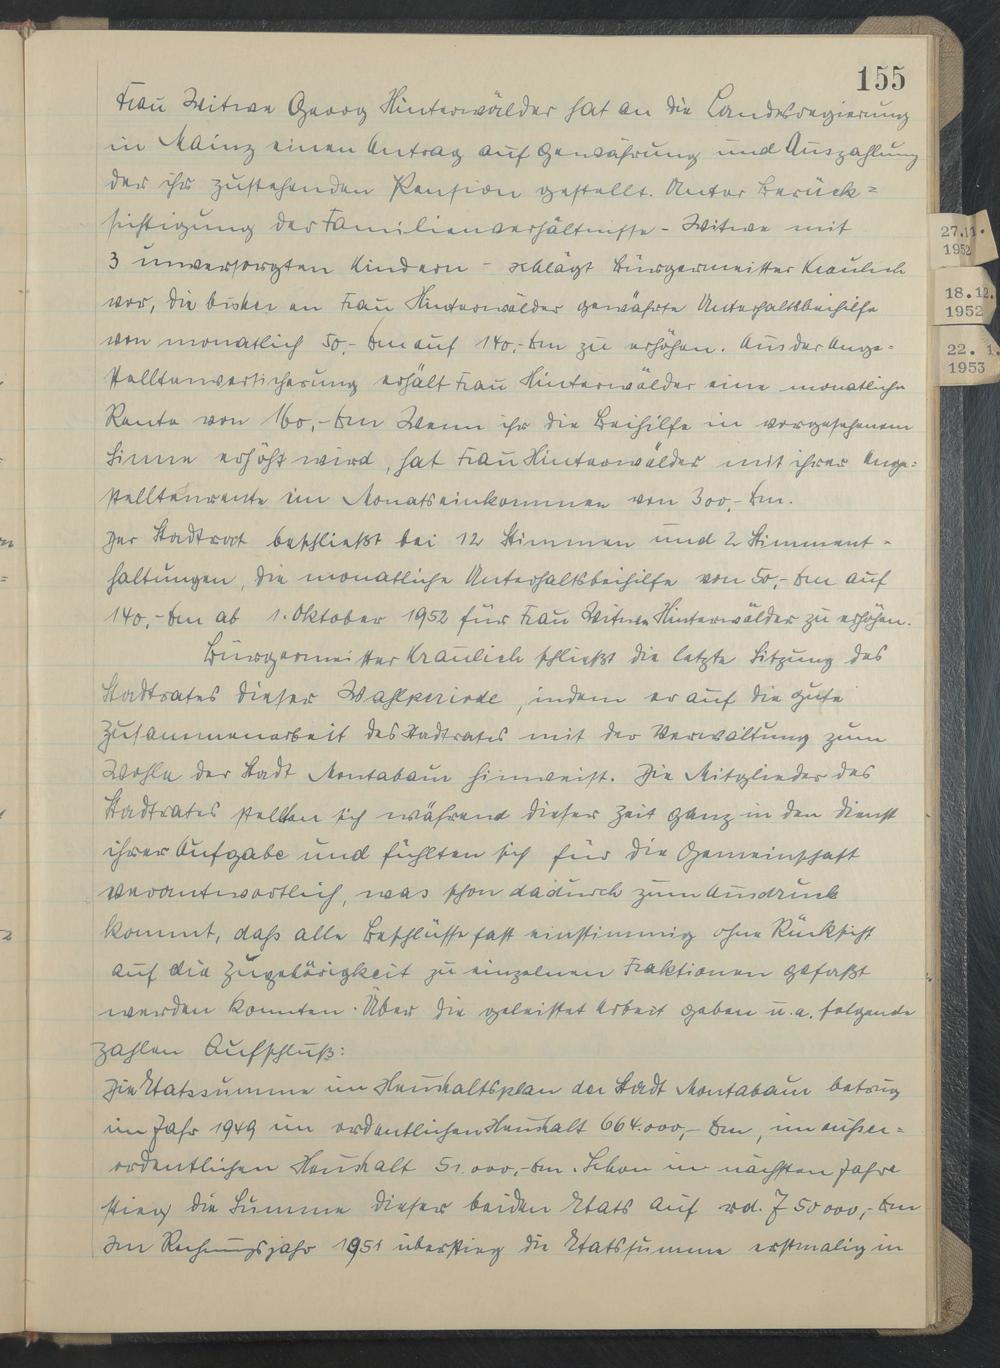 155
Frau Witwe Georg Hinterwälder hat an die Landesregierung
in Mainz einen Antrag auf Gewährung und Auszahlung
der ihr zustehenden Pension gestellt. Unter Berück=
sichtigung der Familienverhältnisse - Witwe mit
3 unversorgten Kindern - schlägt Bürgermeister Kraulich
vor, die bisher an Frau Hinterwälder gewährte Unterhaltsbeihilfe
von monatlich 50,- Dm auf 140,- Dm zu erhöhen. Aus der Ange=
stelltenversicherung erhält Frau Hinterwälder eine monatliche
Rente von 160,- Dm Wenn ihr die Beihilfe in vorgesehenem
Sinne erhöht wird, hat Frau Hinterwälder mit ihrer Ange=
stelltenrente im Monatseinkommen von 300,- Dm.
Der Stadtrat beschließt bei 12 Stimmen und 2 Stimment=
haltungen, die monatliche Unterhaltsbeihilfe von 50,- Dm auf
140,- Dm ab 1. Oktober 1952 für Frau Witwe Hinterwälder zu erhöhen.
Bürgermeister Kraulich schließt die letzte Sitzung des
Stadtrates dieser Wahlperiode, indem er auf die gute
Zusammenarbeit des Stadtrates mit der Verwaltung zum
Wohle der Stadt Montabaur hinweist. Die Mitglieder des
Stadtrates stellten sich während dieser Zeit ganz in den Dienst
ihrer Aufgabe und fühlten sich für die Gemeinschaft
verantwortlich, was schon dadurch zum Ausdruck
kommt, daß alle Beschlüsse fast einstimmig ohne Rücksicht
auf die Zugehörigkeit zu einzelnen Fraktionen gefaßt
werden konnten. Über die geleistet Arbeit geben u.a. folgende
Zahlen Aufschluß:
Die Etatssumme im Haushaltsplan der Stadt Montabaur betrug
im Jahr 1949 im ordentlichen Haushalt 664.000,- Dm, im außer=
ordentlichen Haushalt 51.000,- Dm. Schon im nächsten Jahre
stieg die Summe dieser beiden Etats auf rd. 750000,- Dm
Im Rechnungsjahr 1951 überstieg die Etatssumme erstmalig in
27.11.
1952
18.12.
1952
22. 1.
1953